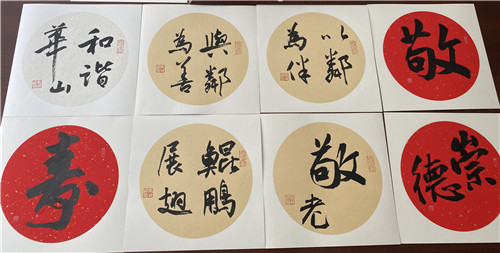 和谐
華山
與鄰
為善
以鄰
為伴
敬
壽
鯤鵬
展翅
敬
老
崇
德